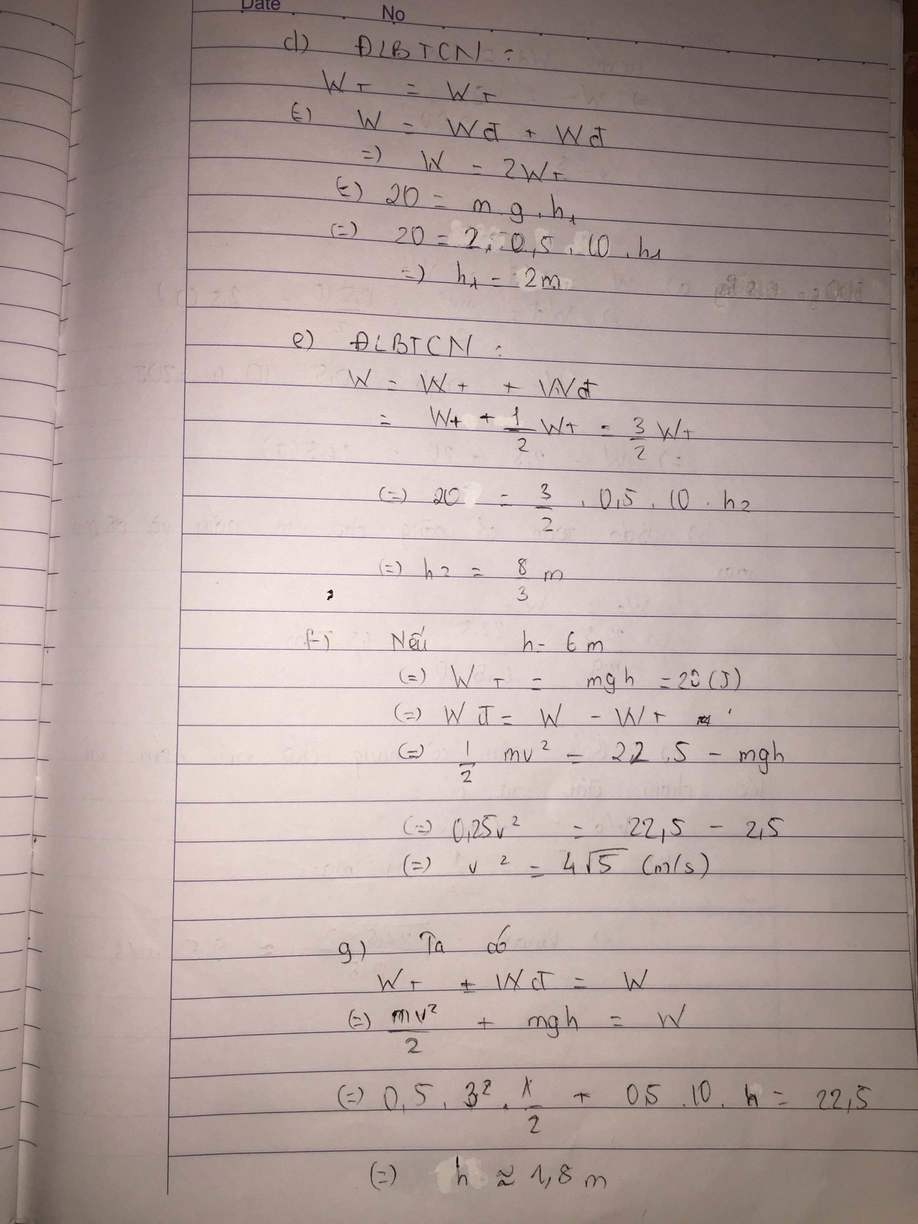 Date No
d) ĐLBTCN :
W_T = W_T
(=) W = Wđ + Wđ
=) W = 2W_T
(=) 20 = m.g.h₁
(=) 20 = 2.0,5.10.h₁
=) h₁ = 2m
e) ĐLBTCN :
W = W_t + Wđ
= W_t + 1/2 W_T = 3/2 W_T
(=) 20 = 3/2 . 0,5 . 10 . h₂
(=) h₂ = 8/3 m
f) Nếu h = 6 m
(=) W_T = mgh = 20 (J)
(=) Wđ = W - W_t
(=) 1/2 mv² = 22.5 - mgh
(=) 0,25v² = 22,5 - 2,5
(=) v² = 4√5 (m/s)
g) Ta có
W_T + Wđ = W
(=) mv²/2 + mgh = W
(=) 0,5 . 3² . 1/2 + 0,5 .10. h = 22,5
(=) h ≈ 1,8 m